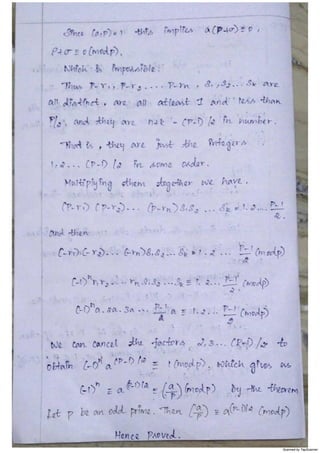 Since (a,p)=1 this implies a(ρ+σ) ≡ 0,
ρ+σ ≡ 0 (mod p),
Which is impossible:
Thus P-r₁, P-r₂.... P-rn, s₁, s₂... sk are
all distinct, are all atleast 1 and less than
P/2 and they are n+k = (P-1)/2 in number.
That is, they are just the integers
1, 2... (P-1)/2 in some order.
Multiplying them together we have.
(P-r₁) (P-r₂)... (P-rn) s₁ s₂ ... sk = 1. 2... P-1/2.
and then
(-r₁)(-r₂)... (-rn) s₁ s₂... sk ≡ 1. 2 ... P-1/2 (mod p)
(-1)ⁿ r₁ r₂... rn s₁ s₂ ... sk ≡ 1. 2... P-1/2 (mod p)
(-1)ⁿ a. 2a. 3a ... P-1/2 a ≡ 1. 2... P-1/2 (mod p)
We can cancel the factors 2, 3... (P-1)/2 to
obtain (-1)ⁿ a^(P-1)/2 ≡ 1 (mod p), which gives us
(-1)ⁿ ≡ a^(P-1)/2 ≡ (a/p) (mod p) by the theorem
Let p be an odd prime. Then (a/p) ≡ a^(P-1)/2 (mod p)
Hence Proved.
Scanned by TapScanner